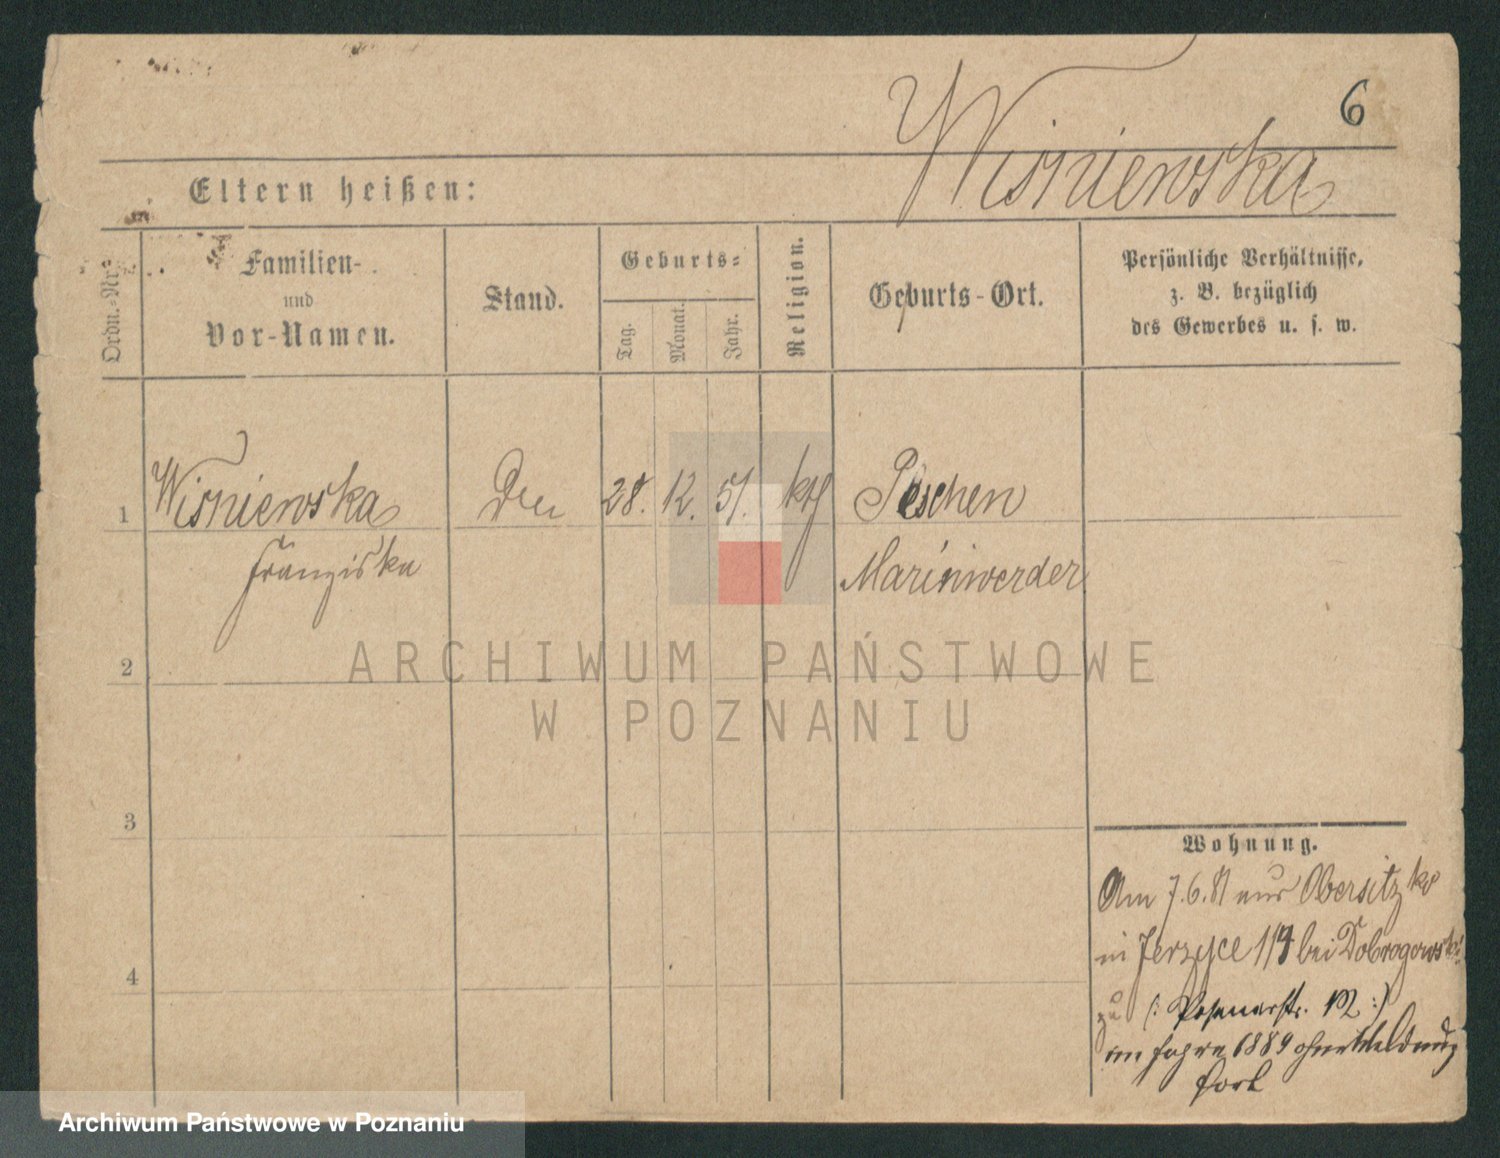 6
Wisniewska
Eltern heißen:
Ordn.-Nr.
Familien-
und
Vor-Namen.
Stand.
Geburts-
Tag.
Monat.
Jahr.
Religion.
Geburts-Ort.
Persönliche Verhältnisse,
z. B. bezüglich
des Gewerbes u. s. w.
1 Wisniewska 28. 12. 51. kth Peschen
Franziska Marienwerder
2
ARCHIWUM PAŃSTWOWE
W POZNANIU
3
4
Wohnung.
Am 7.6.81 aus Obersitzko
in Jerzyce 114 bei Dobrogowski
zu (: Posenerstr. :)
im Jahre 1889 ohne Meldung
fort
Archiwum Państwowe w Poznaniu